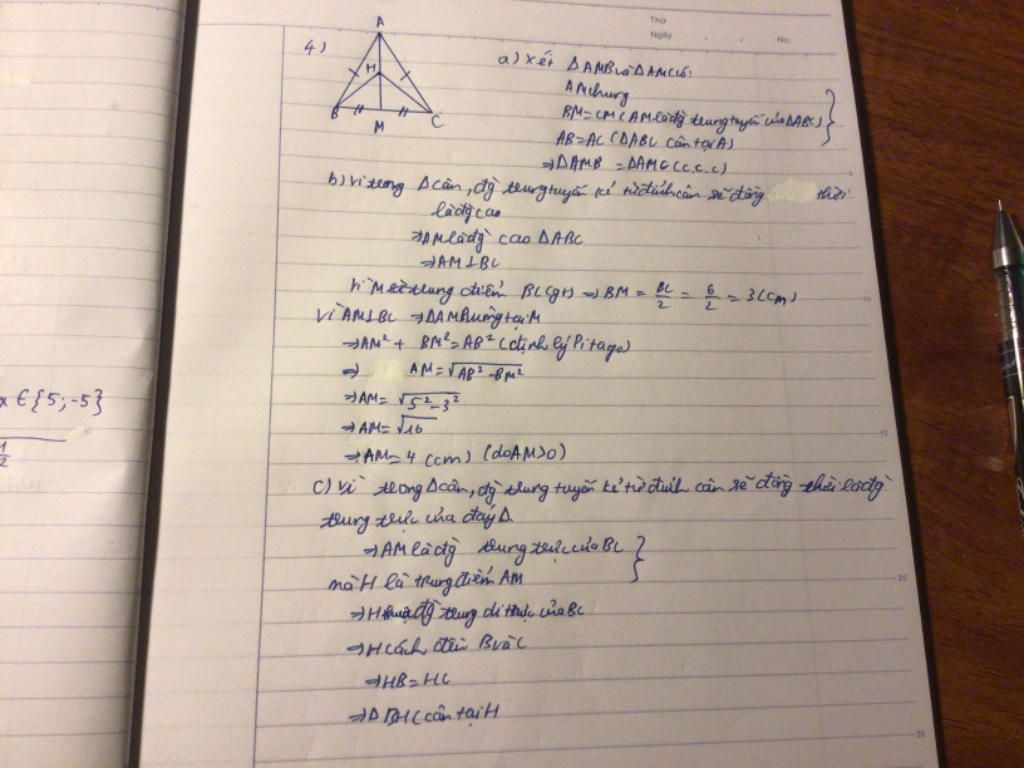 Thứ
Ngày
No.
4)
A
H
B
M
C
a) Xét ΔAMB và ΔAMC có:
AM chung
BM = CM (AM là đg̀ trung tuyến của ΔABC)
AB = AC (ΔABC cân tại A)
⇒ ΔAMB = ΔAMC (c.c.c)
b) Vì trong Δ cân, đg̀ trung tuyến kẻ từ đỉnh cân sẽ đồng thời
là đg̀ cao
⇒ AM là đg̀ cao ΔABC
⇒ AM ⊥ BC
Vì M là trung điểm BC (gt) ⇒ BM = BC/2 = 6/2 = 3 (cm)
Vì AM ⊥ BC ⇒ ΔAMB vuông tại M
⇒ AM² + BM² = AB² (định lý Pitago)
⇒ AM = √AB² - BM²
⇒ AM = √5² - 3²
⇒ AM = √16
⇒ AM = 4 (cm) (do AM > 0)
c) Vì trong Δ cân, đg̀ trung tuyến kẻ từ đỉnh cân sẽ đồng thời là đg̀
trung trực của đáy Δ.
⇒ AM là đg̀ trung trực của BC
mà H là trung điểm AM
⇒ H thuộc đg̀ trung trực của BC
⇒ H cách đều B và C
⇒ HB = HC
⇒ ΔBHC cân tại H
x ∈ {5; -5}
5
10
15
20
25